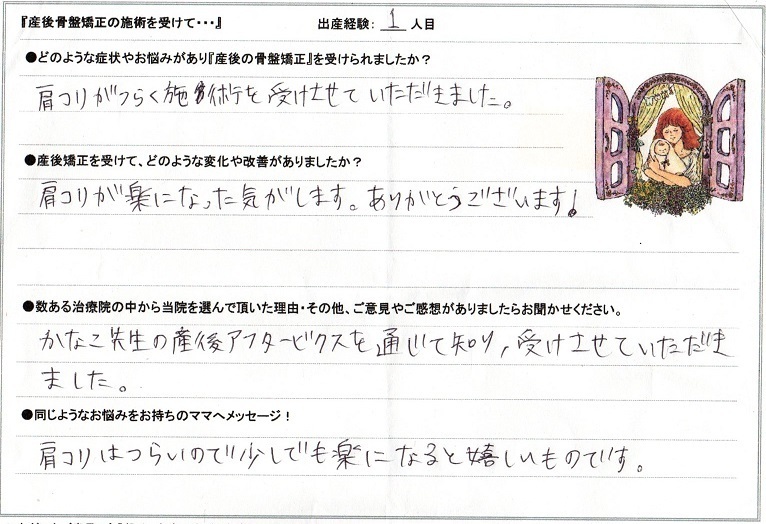 『産後骨盤矯正の施術を受けて・・・』 出産経験: 1 人目
●どのような症状やお悩みがあり『産後の骨盤矯正』を受けられましたか？
肩コリがつらく施術を受けさせていただきました。
●産後矯正を受けて、どのような変化や改善がありましたか？
肩コリが楽になった気がします。ありがとうございます!
●数ある治療院の中から当院を選んで頂いた理由・その他、ご意見やご感想がありましたらお聞かせください。
かなこ先生の産後アフタービクスを通じて知り、受けさせていただき
ました。
●同じようなお悩みをお持ちのママへメッセージ！
肩コリはつらいので少しでも楽になると嬉しいものです。